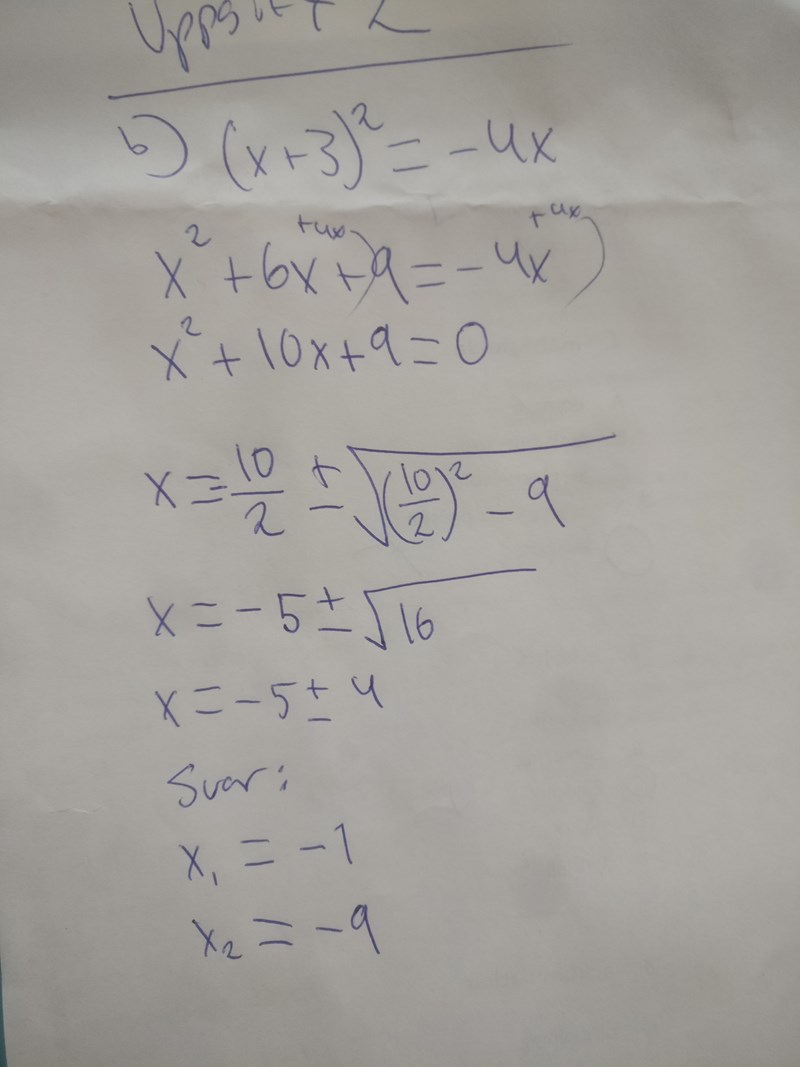 Uppgift 2
b) (x+3)² = -4x
x² + 6x +4x) + 9 = -4x +4x)
x² + 10x + 9 = 0
x = 10/2 ± √((10/2)² - 9)
x = -5 ± √16
x = -5 ± 4
Svar:
x₁ = -1
x₂ = -9